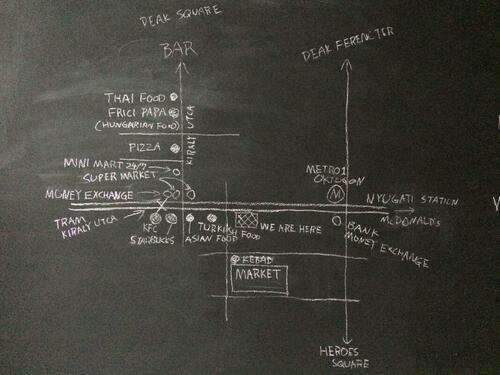 DEAK SQUARE
BAR
DEAK FERENCTER
THAI FOOD
FRICI PAPA
(HUNGARIAN FOOD)
KIRALY UTCA
PIZZA
MINI MART 24/7
SUPER MARKET
MONEY EXCHANGE
METRO1
OKTOGON
M
NYUGATI STATION
MCDONALD'S
TRAM
KIRALY UTCA
KFC
STARBUCKS
ASIAN FOOD
TURKISH FOOD
WE ARE HERE
BANK
MONEY EXCHANGE
KEBAB
MARKET
HEROES
SQUARE